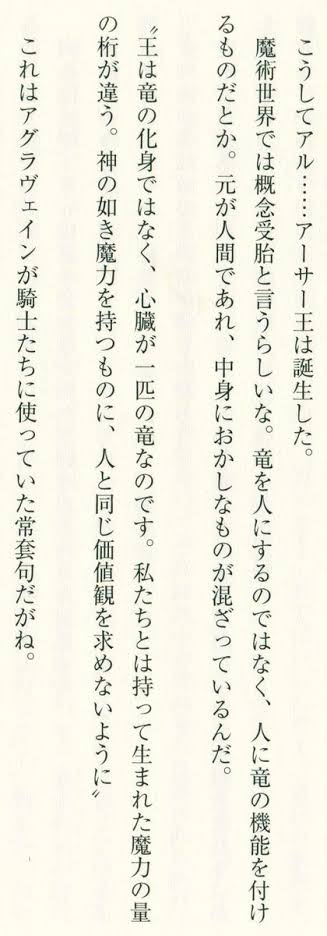 こうしてアル……アーサー王は誕生した。
魔術世界では概念受胎と言うらしいな。竜を人にするのではなく、人に竜の機能を付け
るものだとか。元が人間であれ、中身におかしなものが混ざっているんだ。
〝王は竜の化身ではなく、心臓が一匹の竜なのです。私たちとは持って生まれた魔力の量
の桁が違う。神の如き魔力を持つものに、人と同じ価値観を求めないように〟
これはアグラヴェインが騎士たちに使っていた常套句だがね。